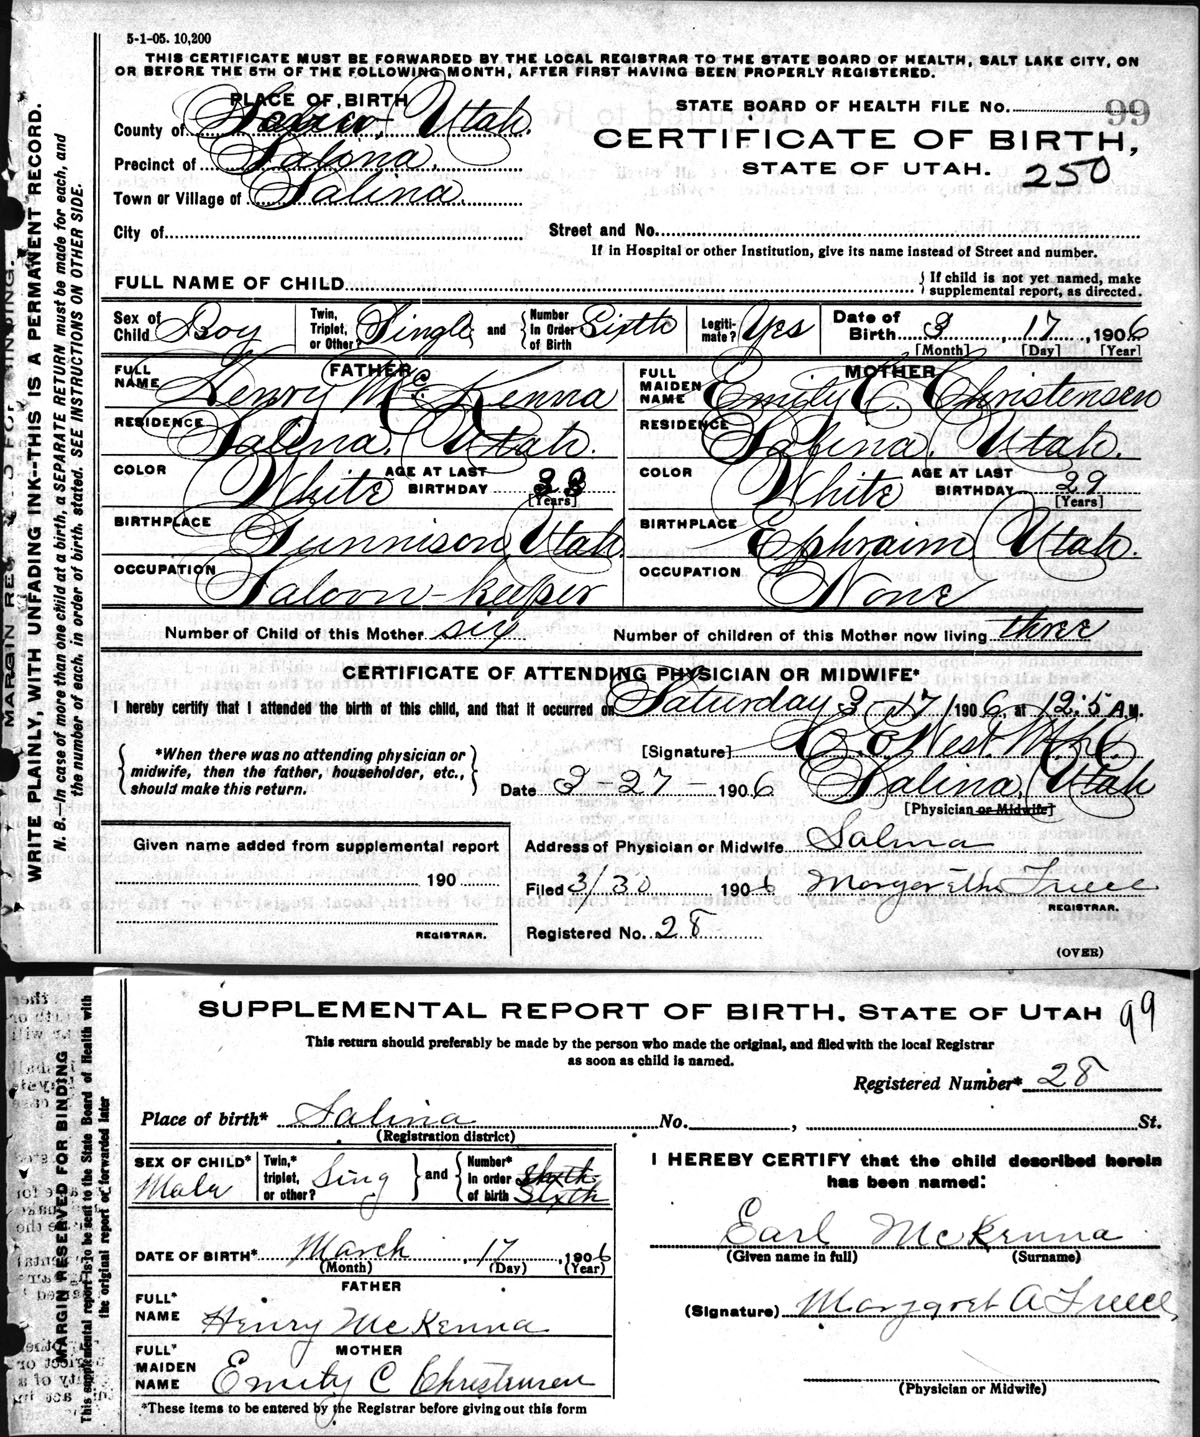 5-1-05. 10,200
THIS CERTIFICATE MUST BE FORWARDED BY THE LOCAL REGISTRAR TO THE STATE BOARD OF HEALTH, SALT LAKE CITY, ON
OR BEFORE THE 5TH OF THE FOLLOWING MONTH, AFTER FIRST HAVING BEEN PROPERLY REGISTERED.
PLACE OF BIRTH
STATE BOARD OF HEALTH FILE No. 99
County of Utah.
CERTIFICATE OF BIRTH,
Precinct of Salina.
STATE OF UTAH. 250
Town or Village of Salina
City of
Street and No.
If in Hospital or other Institution, give its name instead of Street and number.
FULL NAME OF CHILD
{ If child is not yet named, make supplemental report, as directed.
Sex of Child Boy
Twin, Triplet, or Other? Single and { Number in Order of Birth Sixth
Legitimate? Yes
Date of Birth 3, 17, 1906
[Month] [Day] [Year]
FATHER
FULL NAME Henry McKenna
RESIDENCE Salina, Utah.
COLOR White AGE AT LAST BIRTHDAY 33
[Years]
BIRTHPLACE Gunnison, Utah.
OCCUPATION Saloon-keeper
MOTHER
FULL MAIDEN NAME Emily C. Christensen
RESIDENCE Salina, Utah.
COLOR White AGE AT LAST BIRTHDAY 29
[Years]
BIRTHPLACE Ephraim, Utah.
OCCUPATION None
Number of Child of this Mother six Number of children of this Mother now living three
CERTIFICATE OF ATTENDING PHYSICIAN OR MIDWIFE*
I hereby certify that I attended the birth of this child, and that it occurred on Saturday 3-17/1906, at 12:5 A.M.
{ *When there was no attending physician or midwife, then the father, householder, etc., should make this return. }
[Signature] West.
Date 3-27-1906 Salina, Utah
[Physician or Midwife]
Given name added from supplemental report
190
REGISTRAR.
Address of Physician or Midwife Salina
Filed 3/30 1906 Margarethe Freece
REGISTRAR.
Registered No. 28
(OVER)
WRITE PLAINLY, WITH UNFADING INK--THIS IS A PERMANENT RECORD.
N. B.—In case of more than one child at a birth, a SEPARATE RETURN must be made for each, and
the number of each, in order of birth, stated. SEE INSTRUCTIONS ON OTHER SIDE.
SUPPLEMENTAL REPORT OF BIRTH, STATE OF UTAH 99
This return should preferably be made by the person who made the original, and filed with the local Registrar
as soon as child is named.
Registered Number* 28
Place of birth* Salina No. , St.
(Registration district)
SEX OF CHILD* Male
Twin,* triplet, or other? Sing } and { Number* in order of birth Sixth
DATE OF BIRTH* March, 17, 1906
(Month) (Day) (Year)
FATHER
FULL* NAME Henry McKenna
MOTHER
FULL* MAIDEN NAME Emily C Christensen
*These items to be entered by the Registrar before giving out this form
I HEREBY CERTIFY that the child described herein
has been named:
Earl McKenna
(Given name in full) (Surname)
(Signature) Margaret A Freece
(Physician or Midwife)
MARGIN RESERVED FOR BINDING
This supplemental report is to be sent to the State Board of Health with
the original report or forwarded later